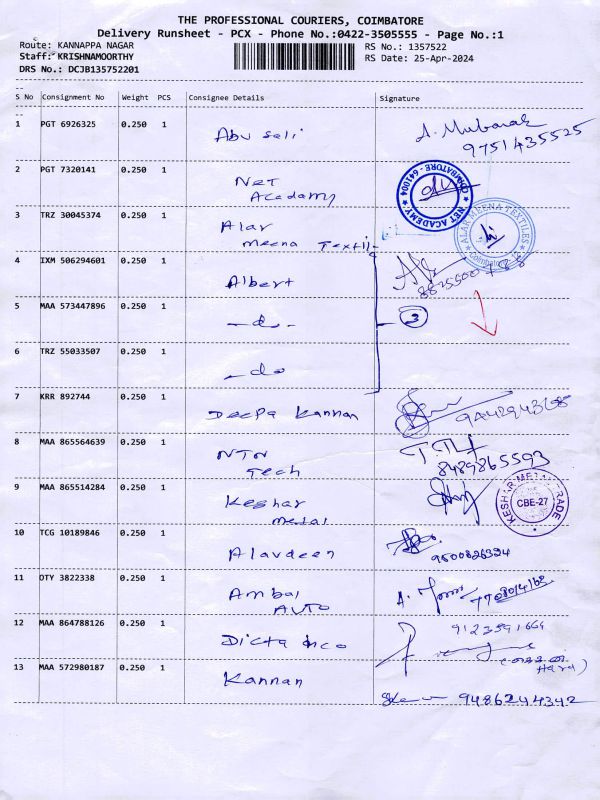 THE PROFESSIONAL COURIERS, COIMBATORE
Delivery Runsheet - PCX - Phone No.:0422-3505555 - Page No.:1
Route: KANNAPPA NAGAR RS No.: 1357522
Staff: KRISHNAMOORTHY RS Date: 25-Apr-2024
DRS No.: DCJB135752201
S No Consignment No Weight PCS Consignee Details Signature
1 PGT 6926325 0.250 1 Abu sali A. Mubarak
9751435525
2 PGT 7320141 0.250 1 Net
Academy
NET ACADEMY COIMBATORE - 641004
3 TRZ 30045374 0.250 1 Alar
Meena Textil
ALAR MEENA TEXTILES Coimbatore
4 IXM 506294601 0.250 1 Albert
5 MAA 573447896 0.250 1 -do- 3
6 TRZ 55033507 0.250 1 -do
7 KRR 892744 0.250 1 Deepa Kannan
8 MAA 865564639 0.250 1 NTN
Tech
8489865593
9 MAA 865514284 0.250 1 Keshar
Metal
KESHAR METAL TRADE
CBE-27
10 TCG 10189846 0.250 1 Alavdeen
9500826334
11 OTY 3822338 0.250 1 Ambal
AUTO
12 MAA 864788126 0.250 1 Dicta Inco
13 MAA 572980187 0.250 1 Kannan
9486244342